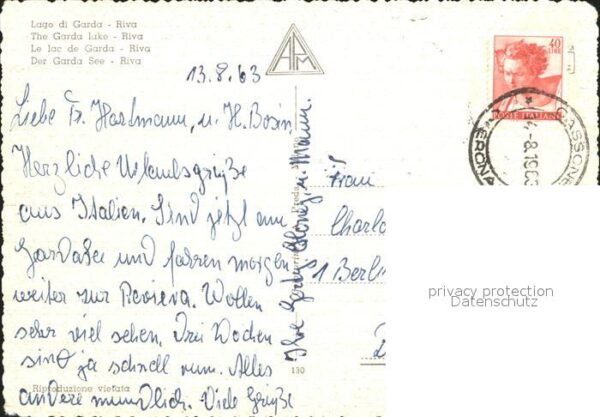 Lago di Garda - Riva
The Garda lake - Riva
Le lac de Garda - Riva
Der Garda See - Riva
APM
13.8.63
Liebe Fr. Hartmann, u. H. Bosin
Herzliche Urlaubsgrüße
aus Italien. Sind jetzt am
Gardasee und fahren morgen
weiter zur Reviera. Wollen
sehr viel sehen. Drei Wochen
sind ja schnell rum. Alles
andere mündlich. Viele Grüße
Ihre Gerda u. Mann.
Riproduzione vietata
130
40
LIRE
POSTE ITALIANE
CASSONE
VERONA
-8.1963
Frau
Charlo
1 Berlin
privacy protection
Datenschutz